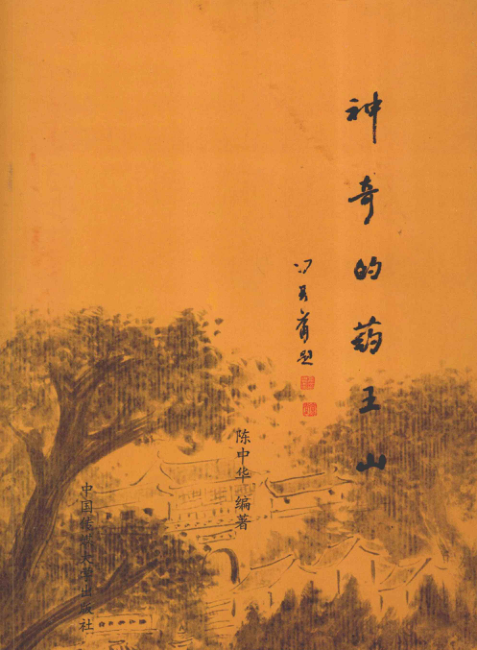 神奇的药王山
题
陈中华 编著
中国
出版社